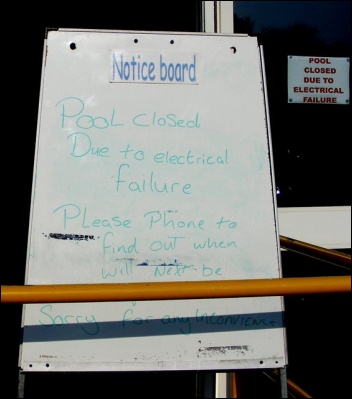 Notice board
Pool closed
Due to electrical
failure
Please Phone to
find out when
will Next be
Sorry for any Inconvience
POOL
CLOSED
DUE TO
ELECTRICAL
FAILURE